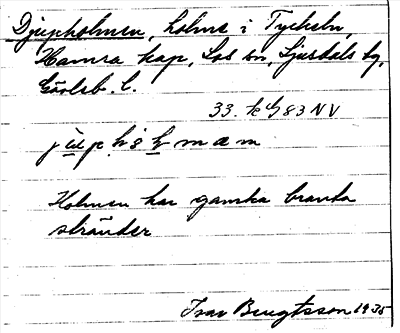 Djupholmen, holme i Tyckeln,
Hamra kap, Los sn, Ljusdals tg,
Gävleb. l.
33. h G 83 NV
Holmen har ganska branta
stränder
Ivar Bengtsson 1935